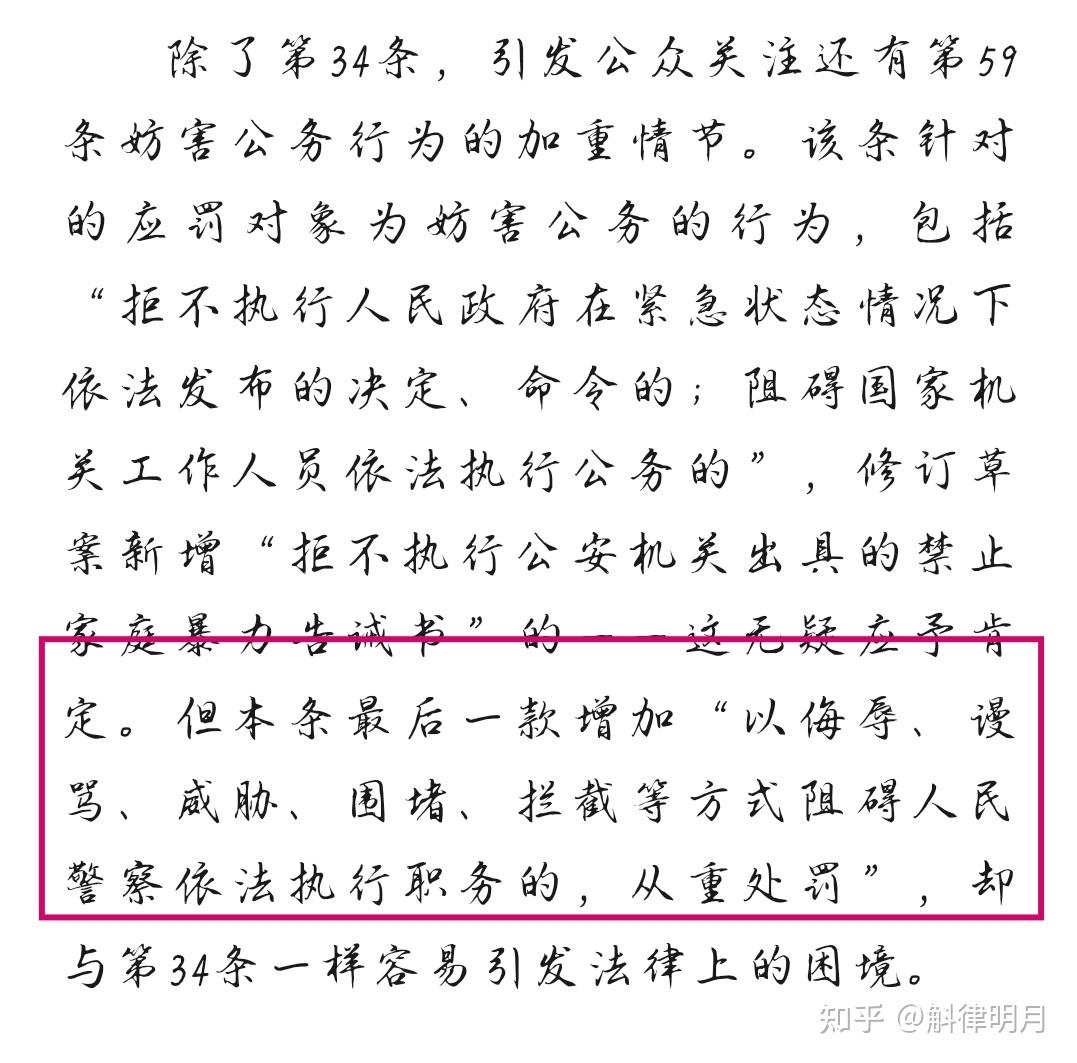 除了第34条，引发公众关注还有第59
条妨害公务行为的加重情节。该条针对
的应罚对象为妨害公务的行为，包括
“拒不执行人民政府在紧急状态情况下
依法发布的决定、命令的；阻碍国家机
关工作人员依法执行公务的”，修订草
案新增“拒不执行公安机关出具的禁止
家庭暴力告诫书”的——这无疑应予肯
定。但本条最后一款增加“以侮辱、谩
骂、威胁、围堵、拦截等方式阻碍人民
警察依法执行职务的，从重处罚”，却
与第34条一样容易引发法律上的困境。
知乎 @斛律明月